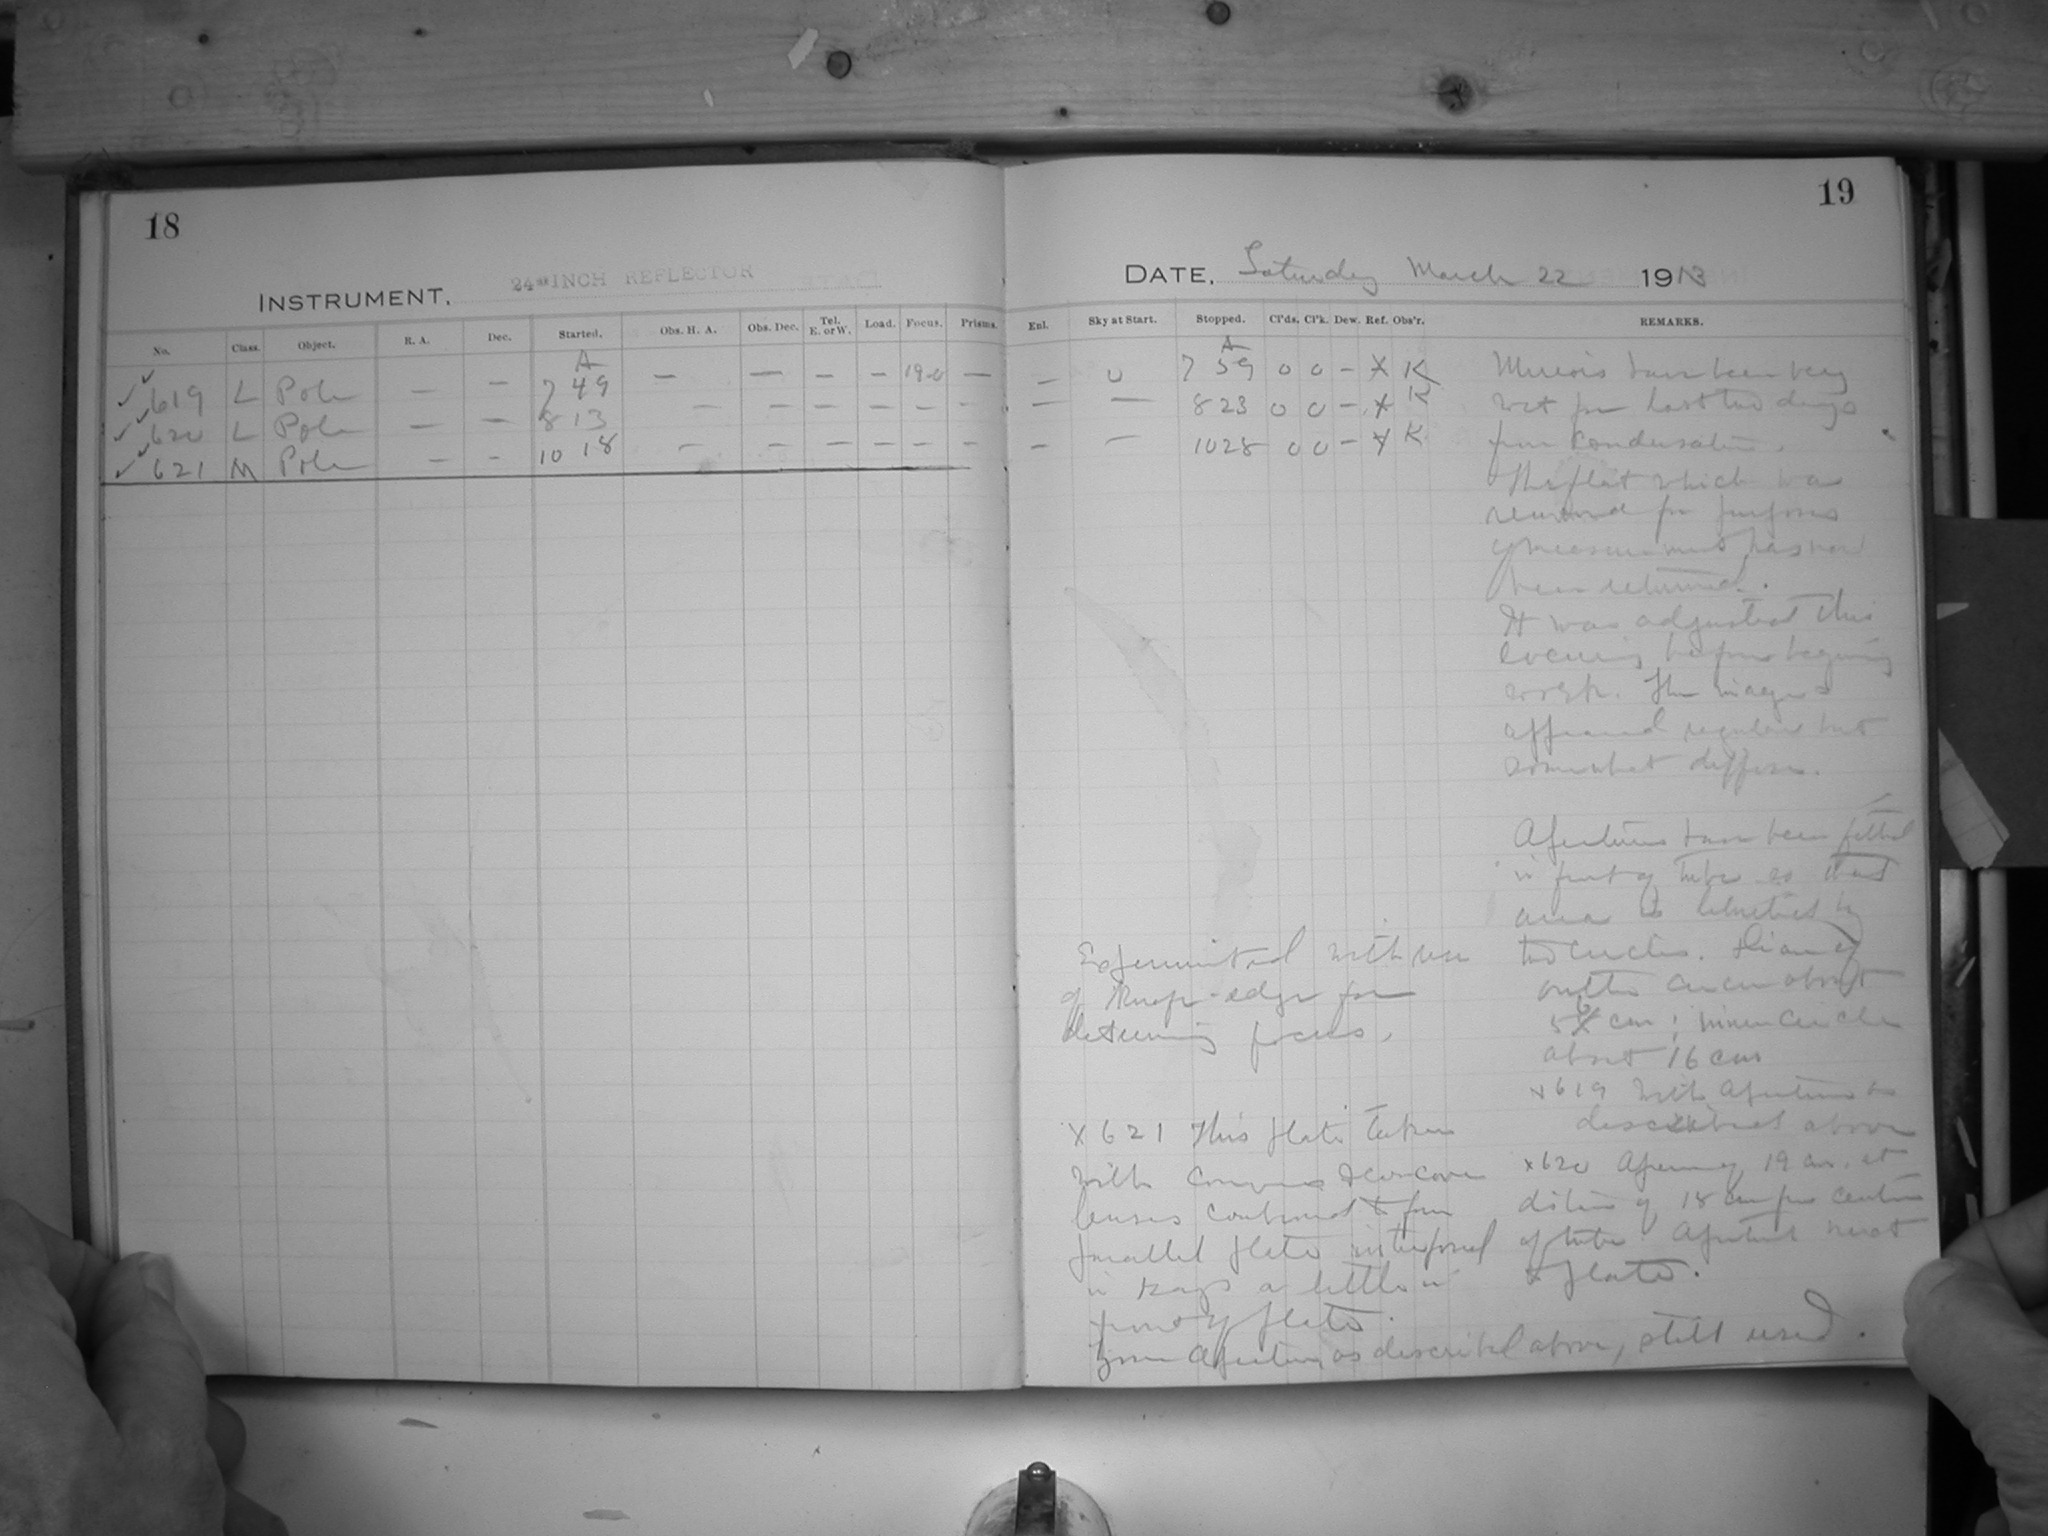 18
INSTRUMENT, 24-INCH REFLECTOR
No. Class. Object. R. A. Dec. Started. Obs. H. A. Obs. Dec. Tel. E. or W. Load. Focus. Prisms.
A
✓✓ 619 L Pole — — 7 49 — — — — 19.0 —
✓✓ 620 L Pole — — 8 13 — — — — — —
✓✓ 621 M Pole — — 10 18 — — — — — —
19
DATE, Saturday March 22 1913
Enl. Sky at Start. Stopped. Cl'ds. Cl'k. Dew. Ref. Obs'r. REMARKS.
A
— 0 7 59 0 0 — X K
— — 8 23 0 0 — X K
— — 10 28 0 0 — X K
Mirrors have been very
wet for last two days
from condensation.
The flat which was
removed for purposes
of measurement has now
been returned.
It was adjusted this
evening before beginning
work. The images
appeared regular but
somewhat diffuse.
Apertures have been fitted
in front of tube so that
area is limited by
two circles. Diam of
outer circle about
56 cm; inner circle
about 16 cm
x619 With Aperture as
described above
x620 Opening 19 cm. at
distance of 18 cm from centre
of tube. Aperture next
to plate.
Experimented with use
of knife-edge for
determining focus.
x621 This plate taken
with convex & concave
lenses combined to form
parallel plate interposed
in rays a little in
front of plate.
Aperture as described above, still used.